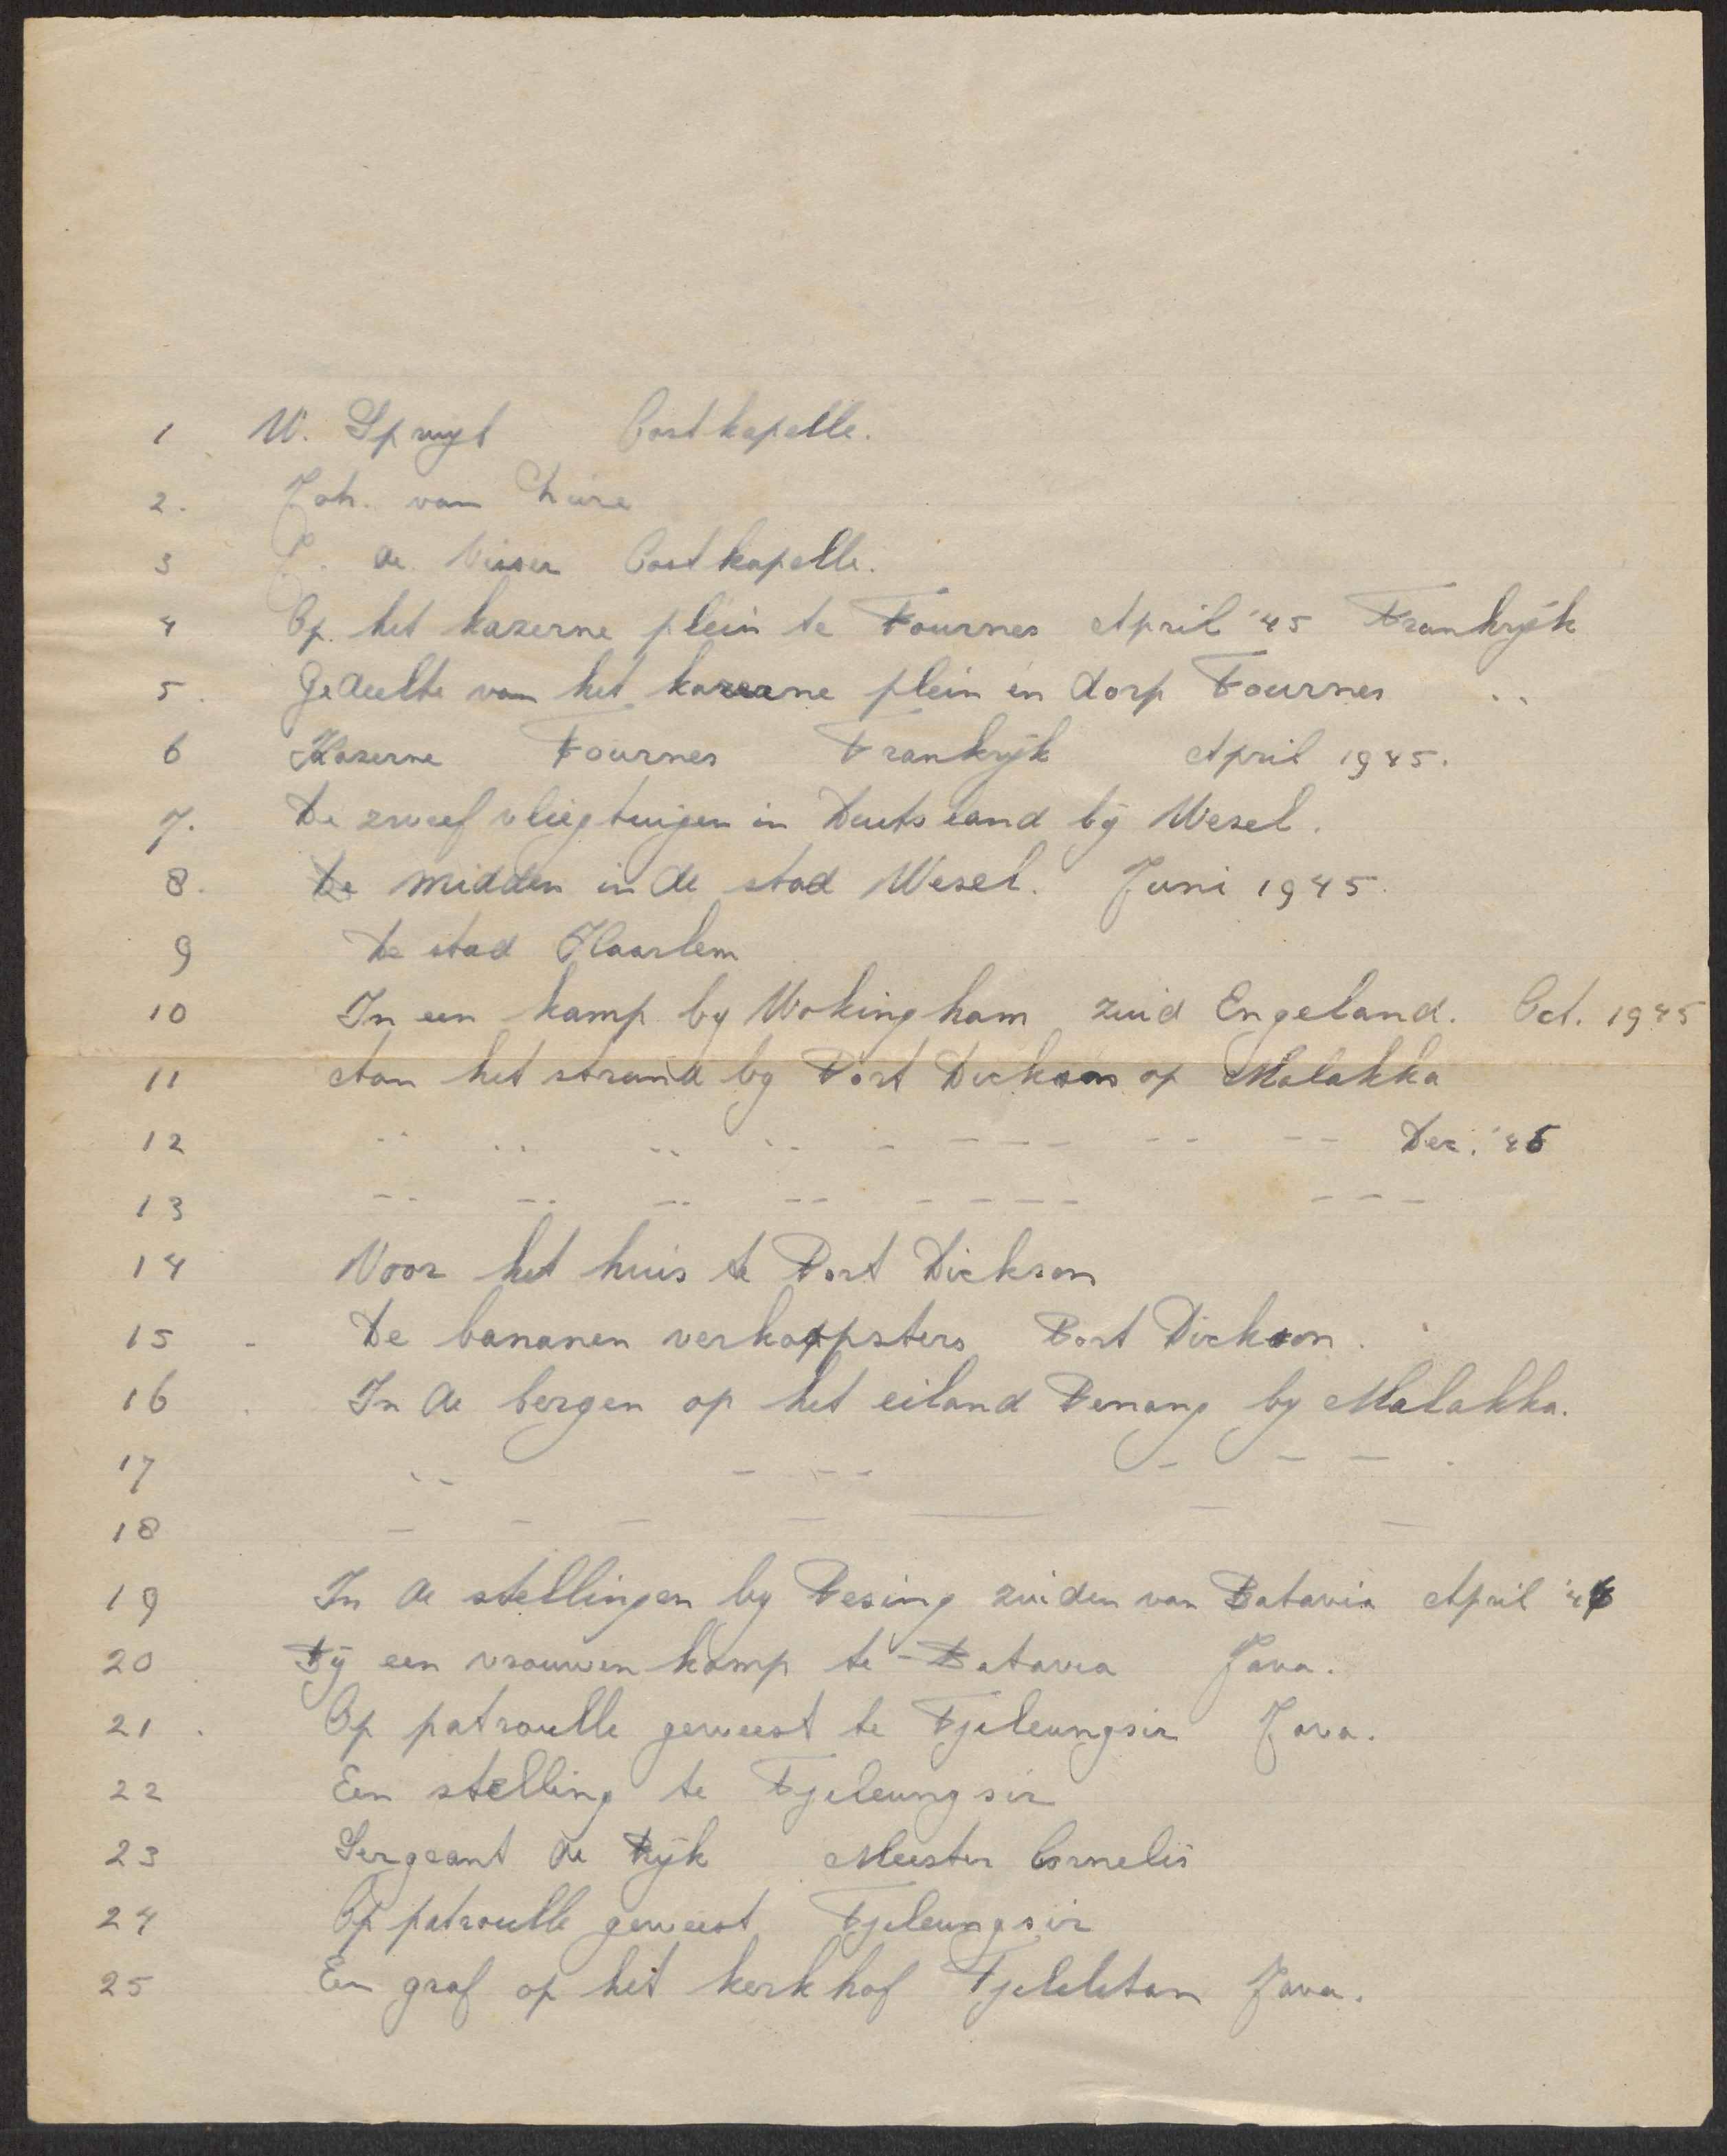 1 W. Spruyt Oostkapelle.
2. Joh. van
3 J. de Visser Oostkapelle.
4 Op het kazerne plein te Fournes April '45 Frankrijk
5. Gedeelte van het kazerne plein en dorp Fournes ..
6 Kazerne Fournes Frankrijk April 1945.
7. De zweef vliegtuigen in Dutsland bij Wesel.
8. De midden in de stad Wesel. Juni 1945.
9 De stad Haarlem
10 In een kamp by Wokingham zuid Engeland. Oct. 1945
11 Aan het strand by Port Dickson op Malakka
12 .. .. .. .. - - - - -- -- Dec. '45
13 -- -- -- -- - - - - - - -
14 Voor het huis te Port Dickson
15 - De bananen verkoopsters Port Dickson.
16 . In de bergen op het eiland Penang by Malakka.
17 -- - -- - - - - .
18 - - - - - - -
19 In de stellingen by Pesing zuiden van Batavia April '46
20 Bij een vrouwen kamp te Batavia Java.
21 . Op patroulle geweest te Tjileungsir Java.
22 Een stelling te Tjileungsir
23 Sergeant de Rijk Meester Cornelis
24 Op patroulle geweest Tjileungsir
25 Een graf op het kerkhof Tjililitan Java.